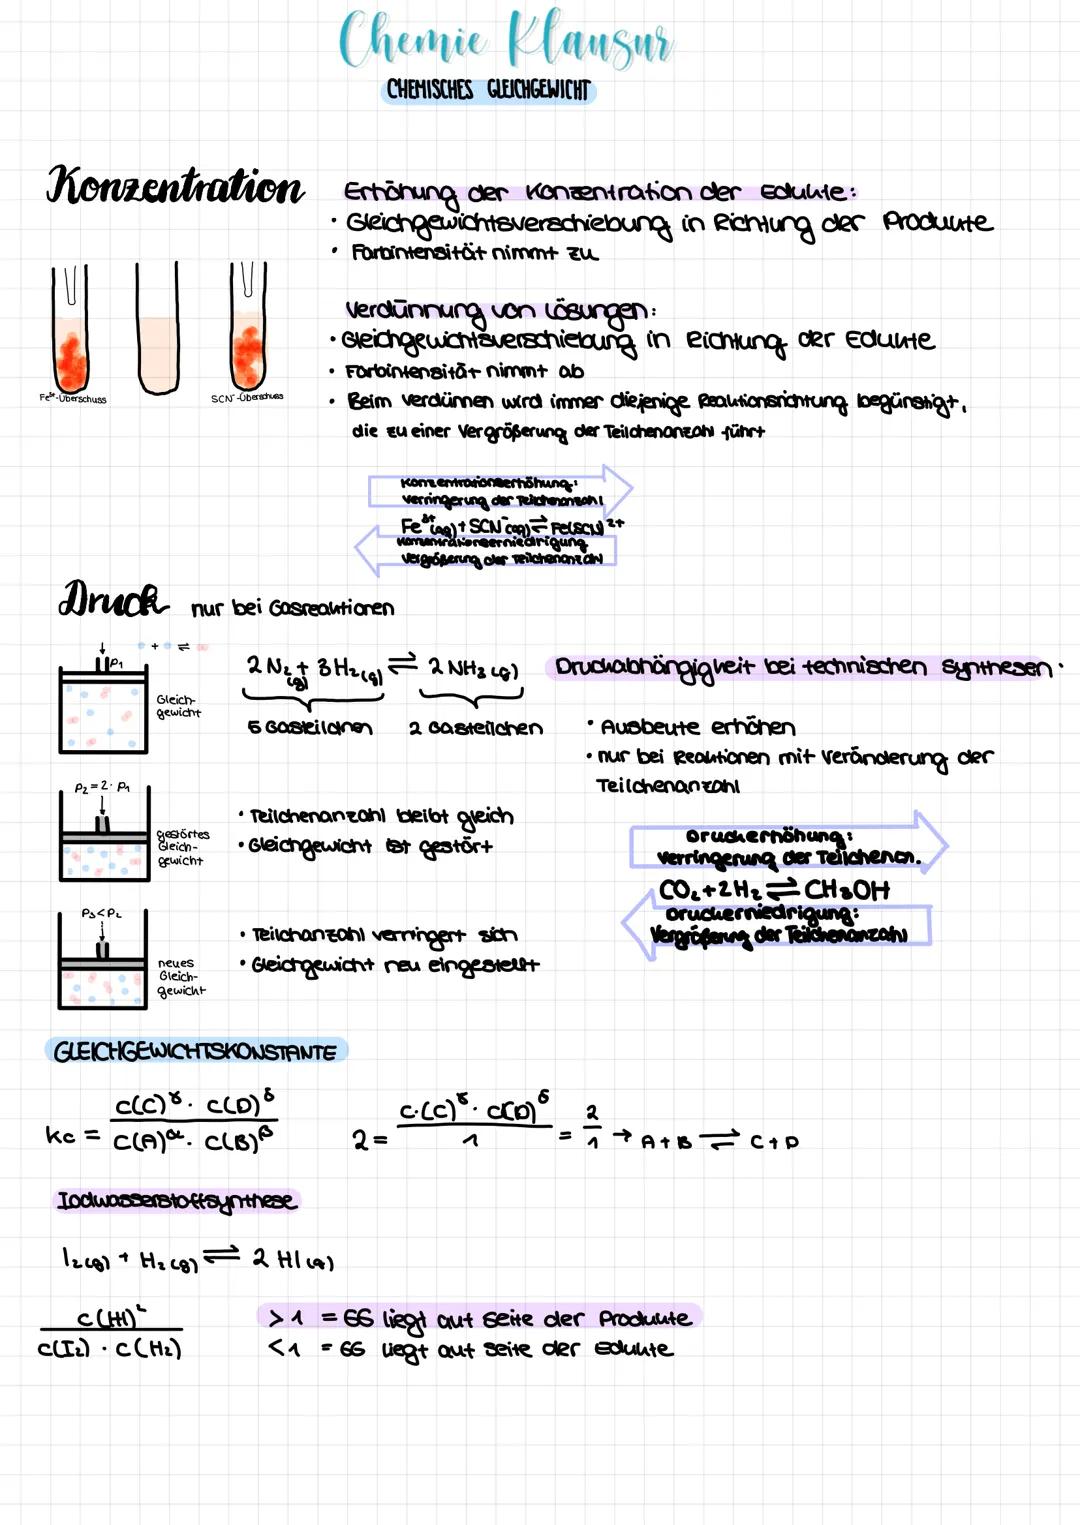 Chemie Klausur
CHEMISCHES GLEICHGEWICHT
Konzentration
Erhöhung der Konzentration der Edukte:
• Gleichgewichtsverschiebung in Richtung der Produkte
• Farbintensität nimmt zu
Verdünnung von Lösungen:
• Gleichgewichtsverschiebung in Richtung der Edukte
• Farbintensität nimmt ab
• Beim Verdünnen wird immer diejenige Reaktionsrichtung begünstigt,
die zu einer Vergrößerung der Teilchenanzahl führt
Fe³⁺-Überschuss
SCN⁻-Überschuss
Konzentrationserhöhung:
Verringerung der Teilchenanzahl
Fe³⁺(aq) + SCN⁻(aq) ⇌ Fe(SCN)²⁺
Konzentrationserniedrigung
Vergrößerung der Teilchenanzahl
Druck nur bei Gasreaktionen
+ ⇌
p₁
Gleich-
gewicht
2 N₂(g) + 3 H₂(g) ⇌ 2 NH₃(g)
5 Gasteilchen 2 Gasteilchen
Druckabhängigkeit bei technischen Synthesen:
• Ausbeute erhöhen
• nur bei Reaktionen mit Veränderung der
Teilchenanzahl
p₂ = 2 · p₁
gestörtes
Gleich-
gewicht
• Teilchenanzahl bleibt gleich
• Gleichgewicht ist gestört
Druckerhöhung:
Verringerung der Teilchenan.
CO₂ + 2 H₂ ⇌ CH₃OH
Druckerniedrigung:
Vergrößerung der Teilchenanzahl
p₃ < p₂
neues
Gleich-
gewicht
• Teilchanzahl verringert sich
• Gleichgewicht neu eingestellt
GLEICHGEWICHTSKONSTANTE
Kc = c(C)^γ · c(D)^δ / c(A)^α · c(B)^β
2 = c·(C)^γ · c(D)^δ / 1 = 2/1 → A + B ⇌ C + D
Iodwasserstoffsynthese
I₂(g) + H₂(g) ⇌ 2 HI(g)
c(HI)² / c(I₂) · c(H₂)
> 1 = GG liegt auf Seite der Produkte
< 1 = GG liegt auf Seite der Edukte